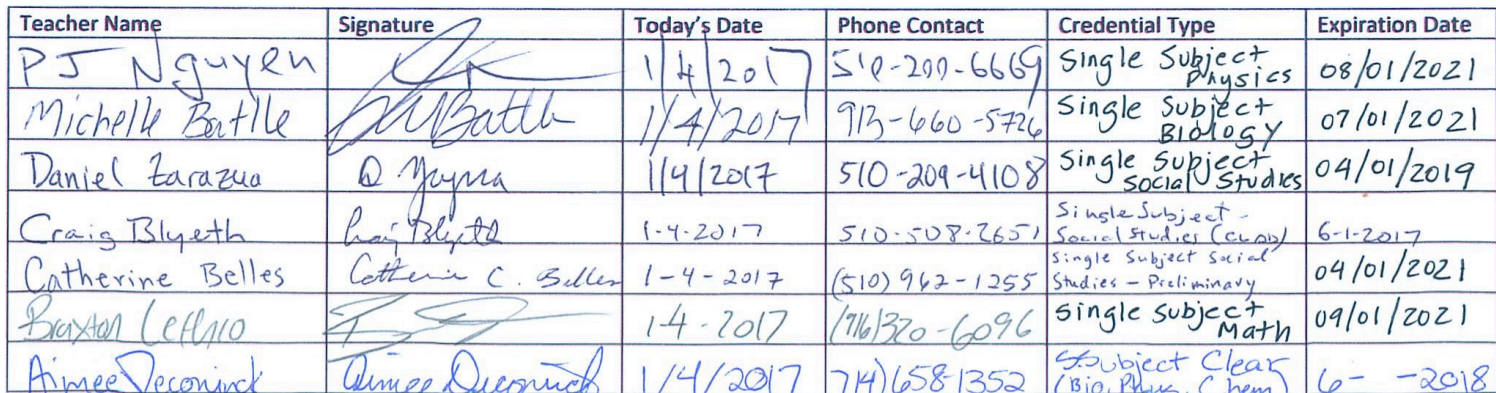 Teacher Name Signature Today's Date Phone Contact Credential Type Expiration Date
PJ Nguyen 1/4/2017 510-200-6669 Single Subject Physics 08/01/2021
Michelle Batlle Batlle 1/4/2017 913-660-5726 Single Subject BIOlOGY 07/01/2021
Daniel Zarazua D 1/4/2017 510-209-4108 Single Subject Social Studies 04/01/2019
Craig Blyeth Craig Blyeth 1-4-2017 510-508-2651 Single Subject - Social Studies (CLAD) 6-1-2017
Catherine Belles Catherine C. Belles 1-4-2017 (510) 962-1255 Single Subject Social Studies - Preliminary 04/01/2021
Braxton 1-4-2017 (916)320-6096 Single Subject Math 09/01/2021
Aimee Deconinck Aimee Deconinck 1/4/2017 714)658-1352 Subject Clear (Bio, Phys, Chem) 6- -2018